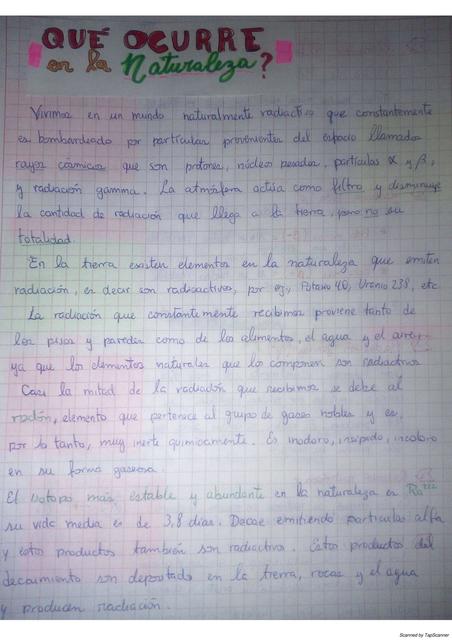 QUÉ OCURRE
en la Naturaleza?
Vivimos en un mundo naturalmente radiactivo que constantemente
es bombardeado por partículas provenientes del espacio llamadas
rayos cósmicos que son protones, núcleos pesados, partículas α y β,
y radiación gamma. La atmósfera actúa como filtro y disminuye
la cantidad de radiación que llega a la tierra, pero no su
totalidad.
En la tierra existen elementos en la naturaleza que emiten
radiación, es decir son radioactivos, por ej, Potasio 40, Uranio 238, etc
La radiación que constantemente recibimos proviene tanto de
los pisos y paredes como de los alimentos, el agua y el aire,
ya que los elementos naturales que los componen son radiactivos
Casi la mitad de la radiación que recibimos se debe al
radón, elemento que pertenece al grupo de gases nobles y es,
por lo tanto, muy inerte químicamente. Es inodoro, insípido, incoloro
en su forma gaseosa.
El isótopo más estable y abundante en la naturaleza es Ra²²²
su vida media es de 3,8 días. Decae emitiendo partículas alfa
y estos productos también son radiactivos. Estos productos del
decaimiento son depositado en la tierra, rocas y el agua
y producen radiación.
Scanned by TapScanner